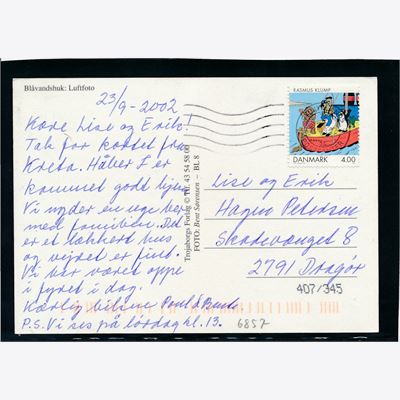 Blåvandshuk: Luftfoto
23/9-2002
Kære Lise og Erik!
Tak for kortet fra
Kreta. Håber I er
kommet godt hjem.
Vi nyder en uge her
med familien. Det
er et lækkert hus
og vejret er fint.
Vi har været oppe
i fyret i dag.
Kærlig hilsen Poul &
P.S. Vi ses på lørdag kl. 13.
Trojaborgs Forlag © Tlf. 43 54 58 00
FOTO: Bent Sørensen – BL 8
RASMUS KLUMP
DANMARK 4.00
Lise og Erik
Petersen
8
2791 Dragør
407/345
6857